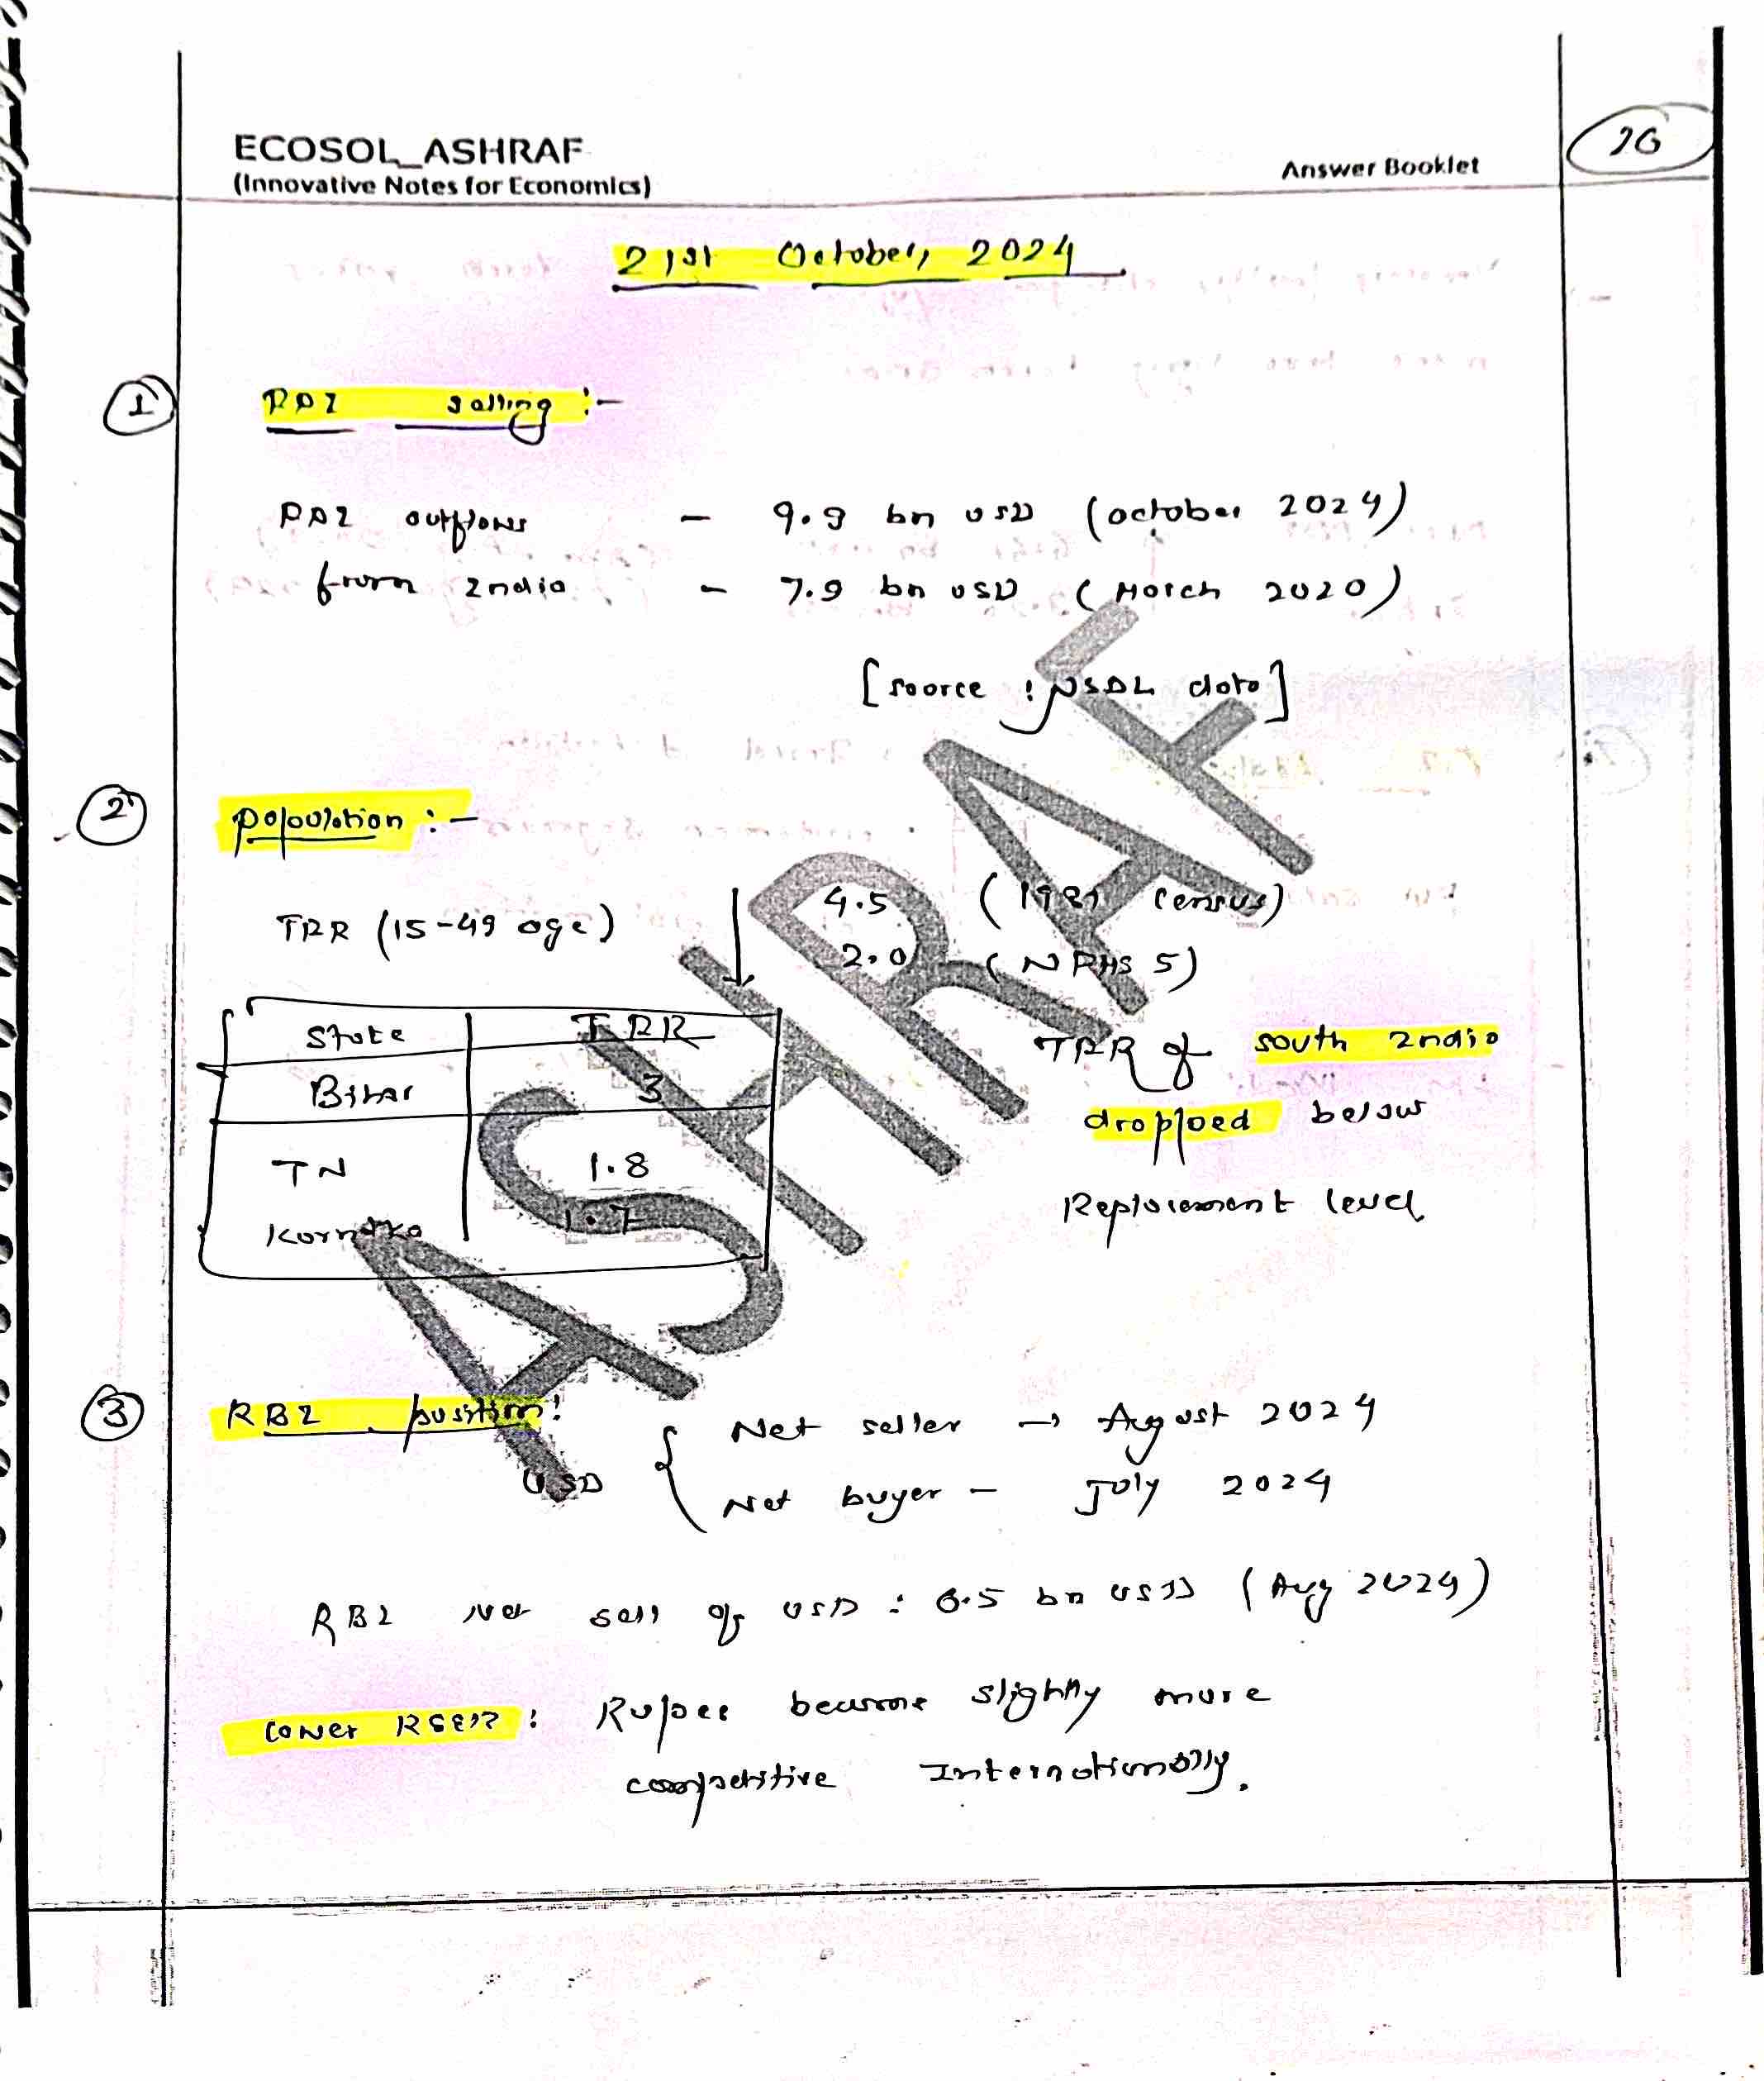 ECOSOL_ASHRAF
(Innovative Notes for Economics)
Answer Booklet
26
21st October, 2024
1 FPI selling :-
FPI outflows - 9.9 bn USD (october 2024)
from India - 7.9 bn USD (March 2020)
[source : NSDL data]
2 population :-
TFR (15-49 age) ↓ 4.5 (1981 census)
2.0 (NFHS 5)
State TFR
Bihar 3
TN 1.8
Karntka 1.7
TFR of south India
dropped below
Replacement level
3 RBI position:
USD { Net seller → August 2024
Net buyer - July 2024
RBI Net sell of USD : 6.5 bn USD (Aug 2024)
Lower REER : Rupee become slightly more
competitive Internationally.
ASHRAF